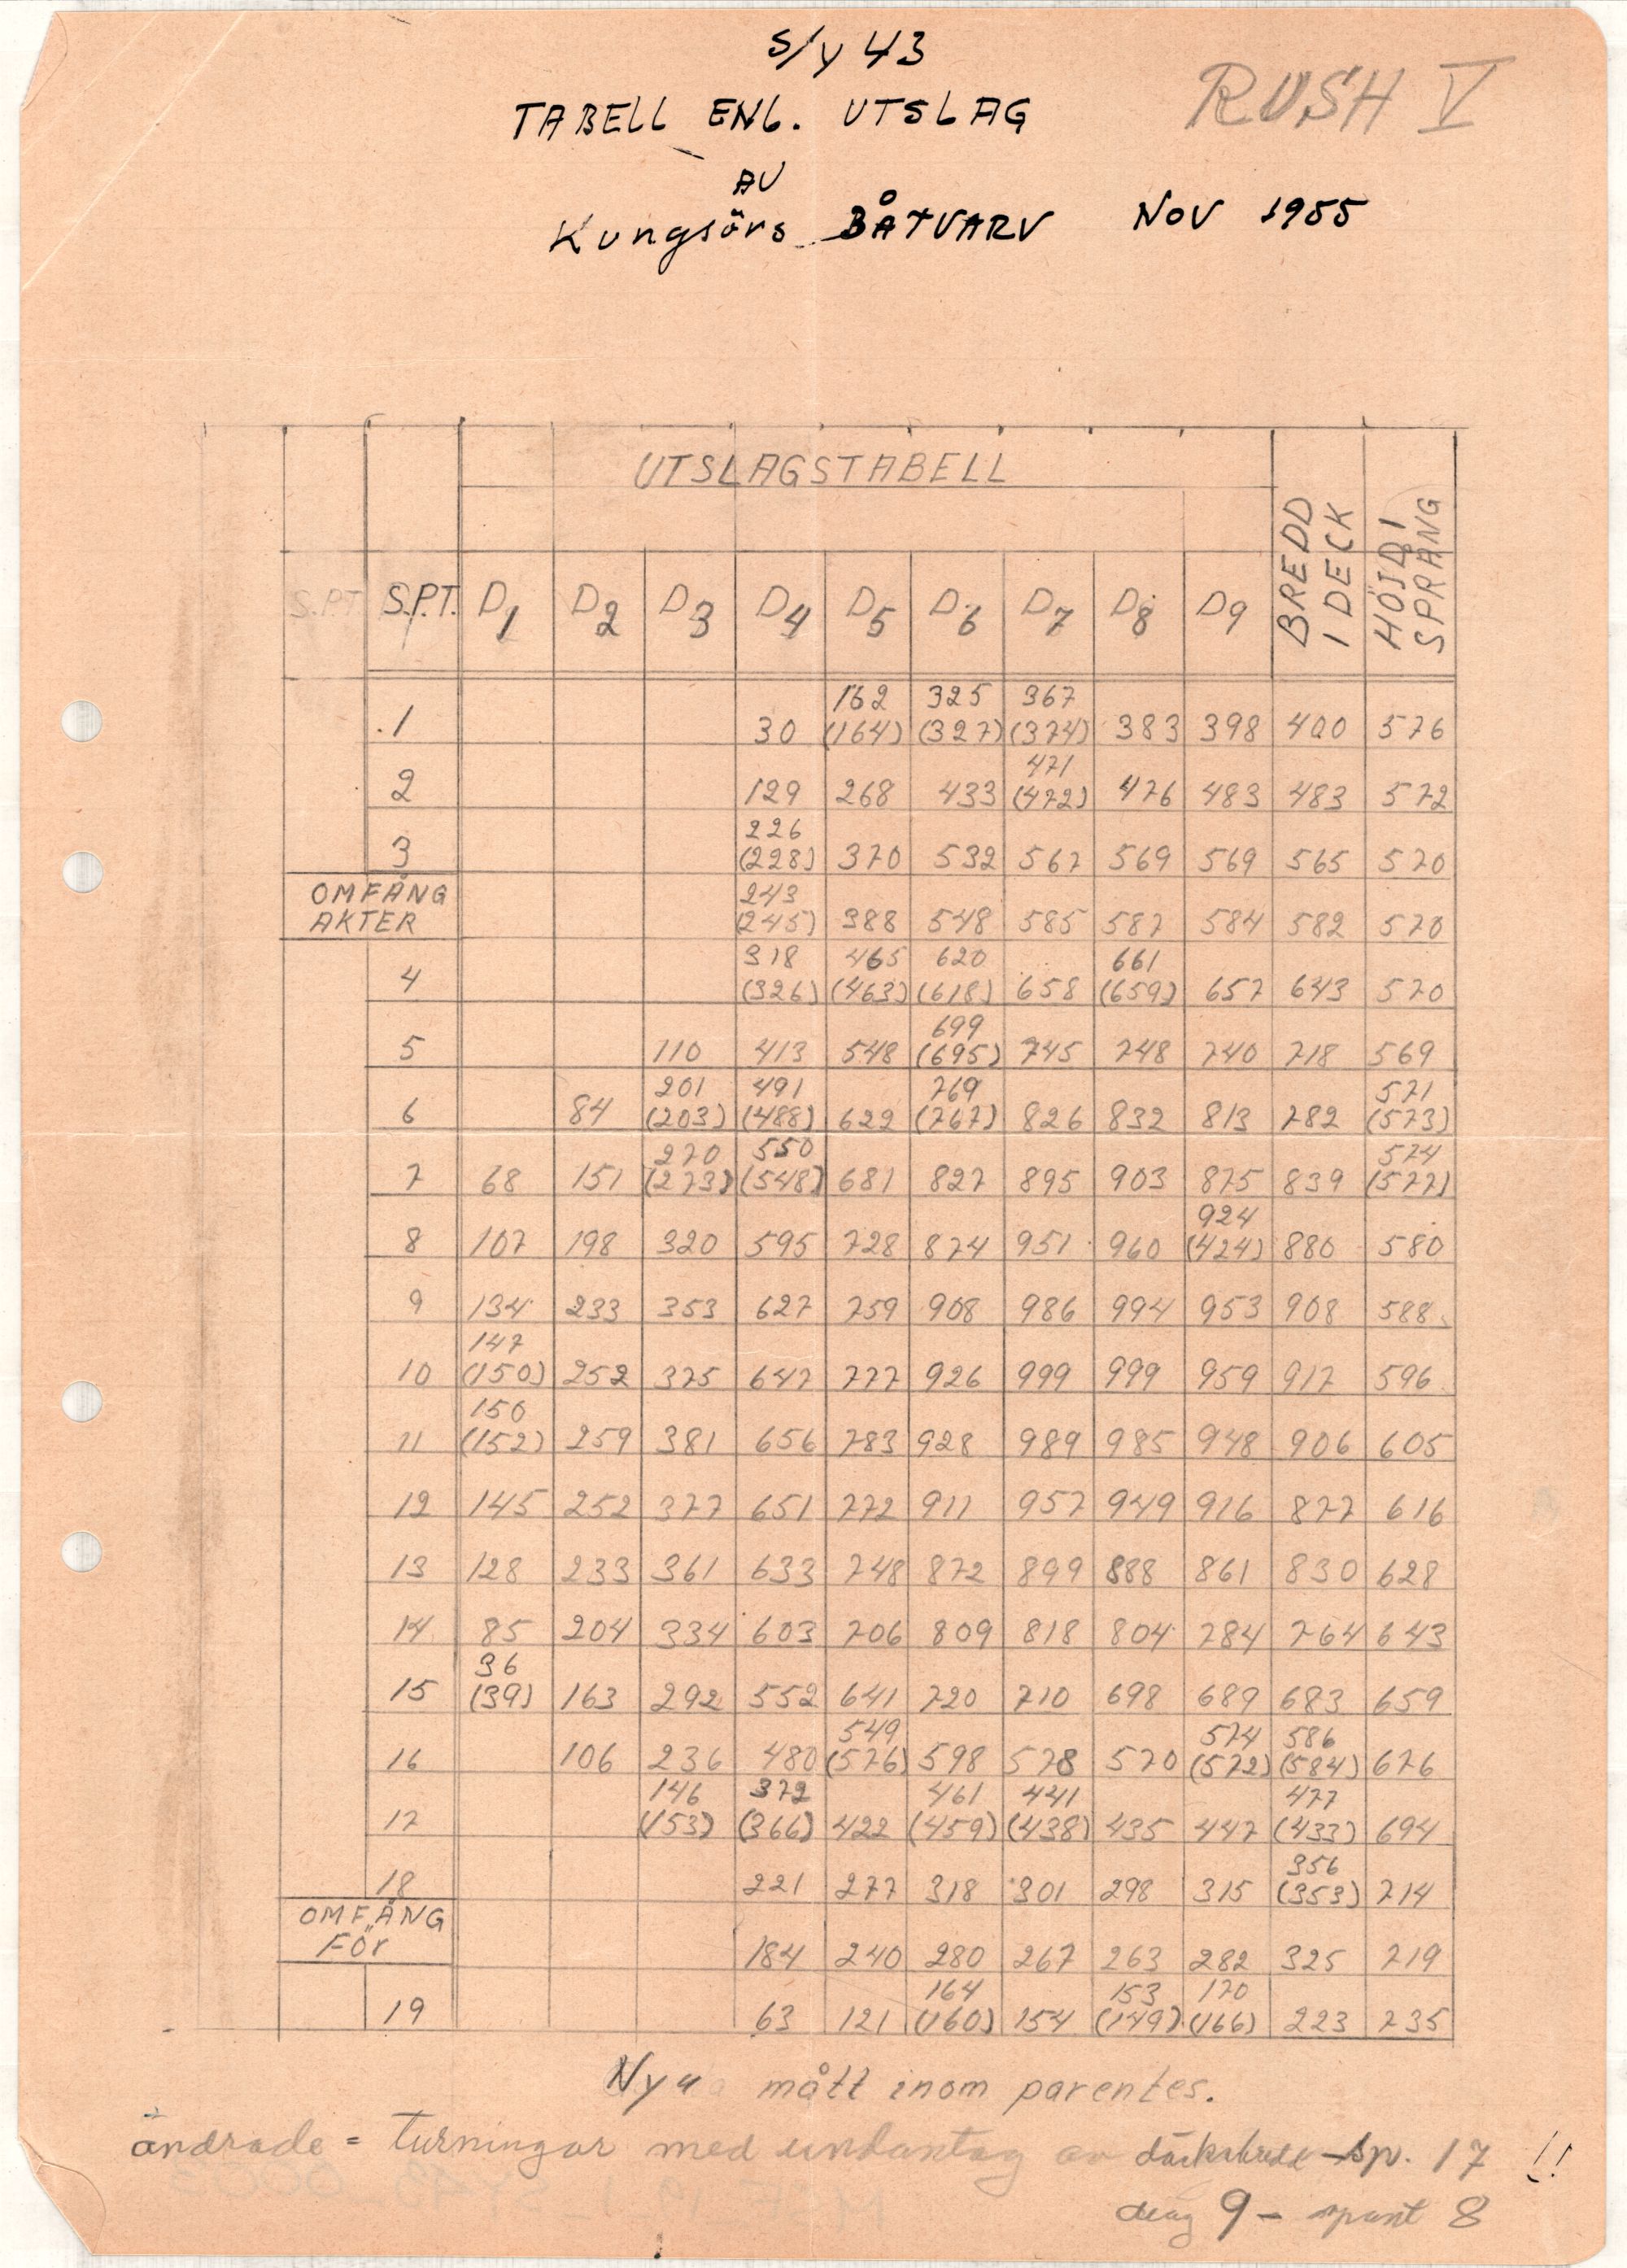 S/Y 43
RUSH V
TABELL ENL. UTSLAG
AV
Kungsörs BÅTVARV NOV 1955
UTSLAGSTABELL
BREDD I DECK
HÖJD I SPRÅNG
S.PT. S.P.T. D1 D2 D3 D4 D5 D6 D7 D8 D9
162 325 367
1 30 (164) (327) (374) 383 398 400 576
471
2 129 268 433 (472) 476 483 483 572
226
3 (228) 370 532 567 569 569 565 570
OMFÅNG 243
AKTER (245) 388 548 585 587 584 582 570
318 465 620 661
4 (326) (463) (618) 658 (659) 657 643 570
699
5 110 413 548 (695) 745 748 740 718 569
201 491 769 571
6 84 (203) (488) 622 (767) 826 832 813 782 (573)
270 550 574
7 68 151 (273) (548) 681 827 895 903 875 839 (577)
924
8 107 198 320 595 728 874 951 960 (424) 880 580
9 134 233 353 627 759 908 986 994 953 908 588
147
10 (150) 252 375 647 777 926 999 999 959 917 596
150
11 (152) 259 381 656 783 928 989 985 948 906 605
12 145 252 377 651 772 911 957 949 916 877 616
13 128 233 361 633 748 872 899 888 861 830 628
14 85 204 334 603 706 809 818 804 784 764 643
36
15 (39) 163 292 552 641 720 710 698 689 683 659
549 574 586
16 106 236 480 (576) 598 578 570 (572) (584) 676
146 372 461 441 477
17 (153) (366) 422 (459) (438) 435 447 (433) 694
356
18 221 277 318 301 298 315 (353) 714
OMFÅNG
FÖR 184 240 280 267 263 282 325 719
164 153 170
19 63 121 (160) 154 (149) (166) 223 735
Nya mått inom parentes.
ändrade = turningar med undantag av däcksbredd - sp. 17 !!
diag 9 - spant 8